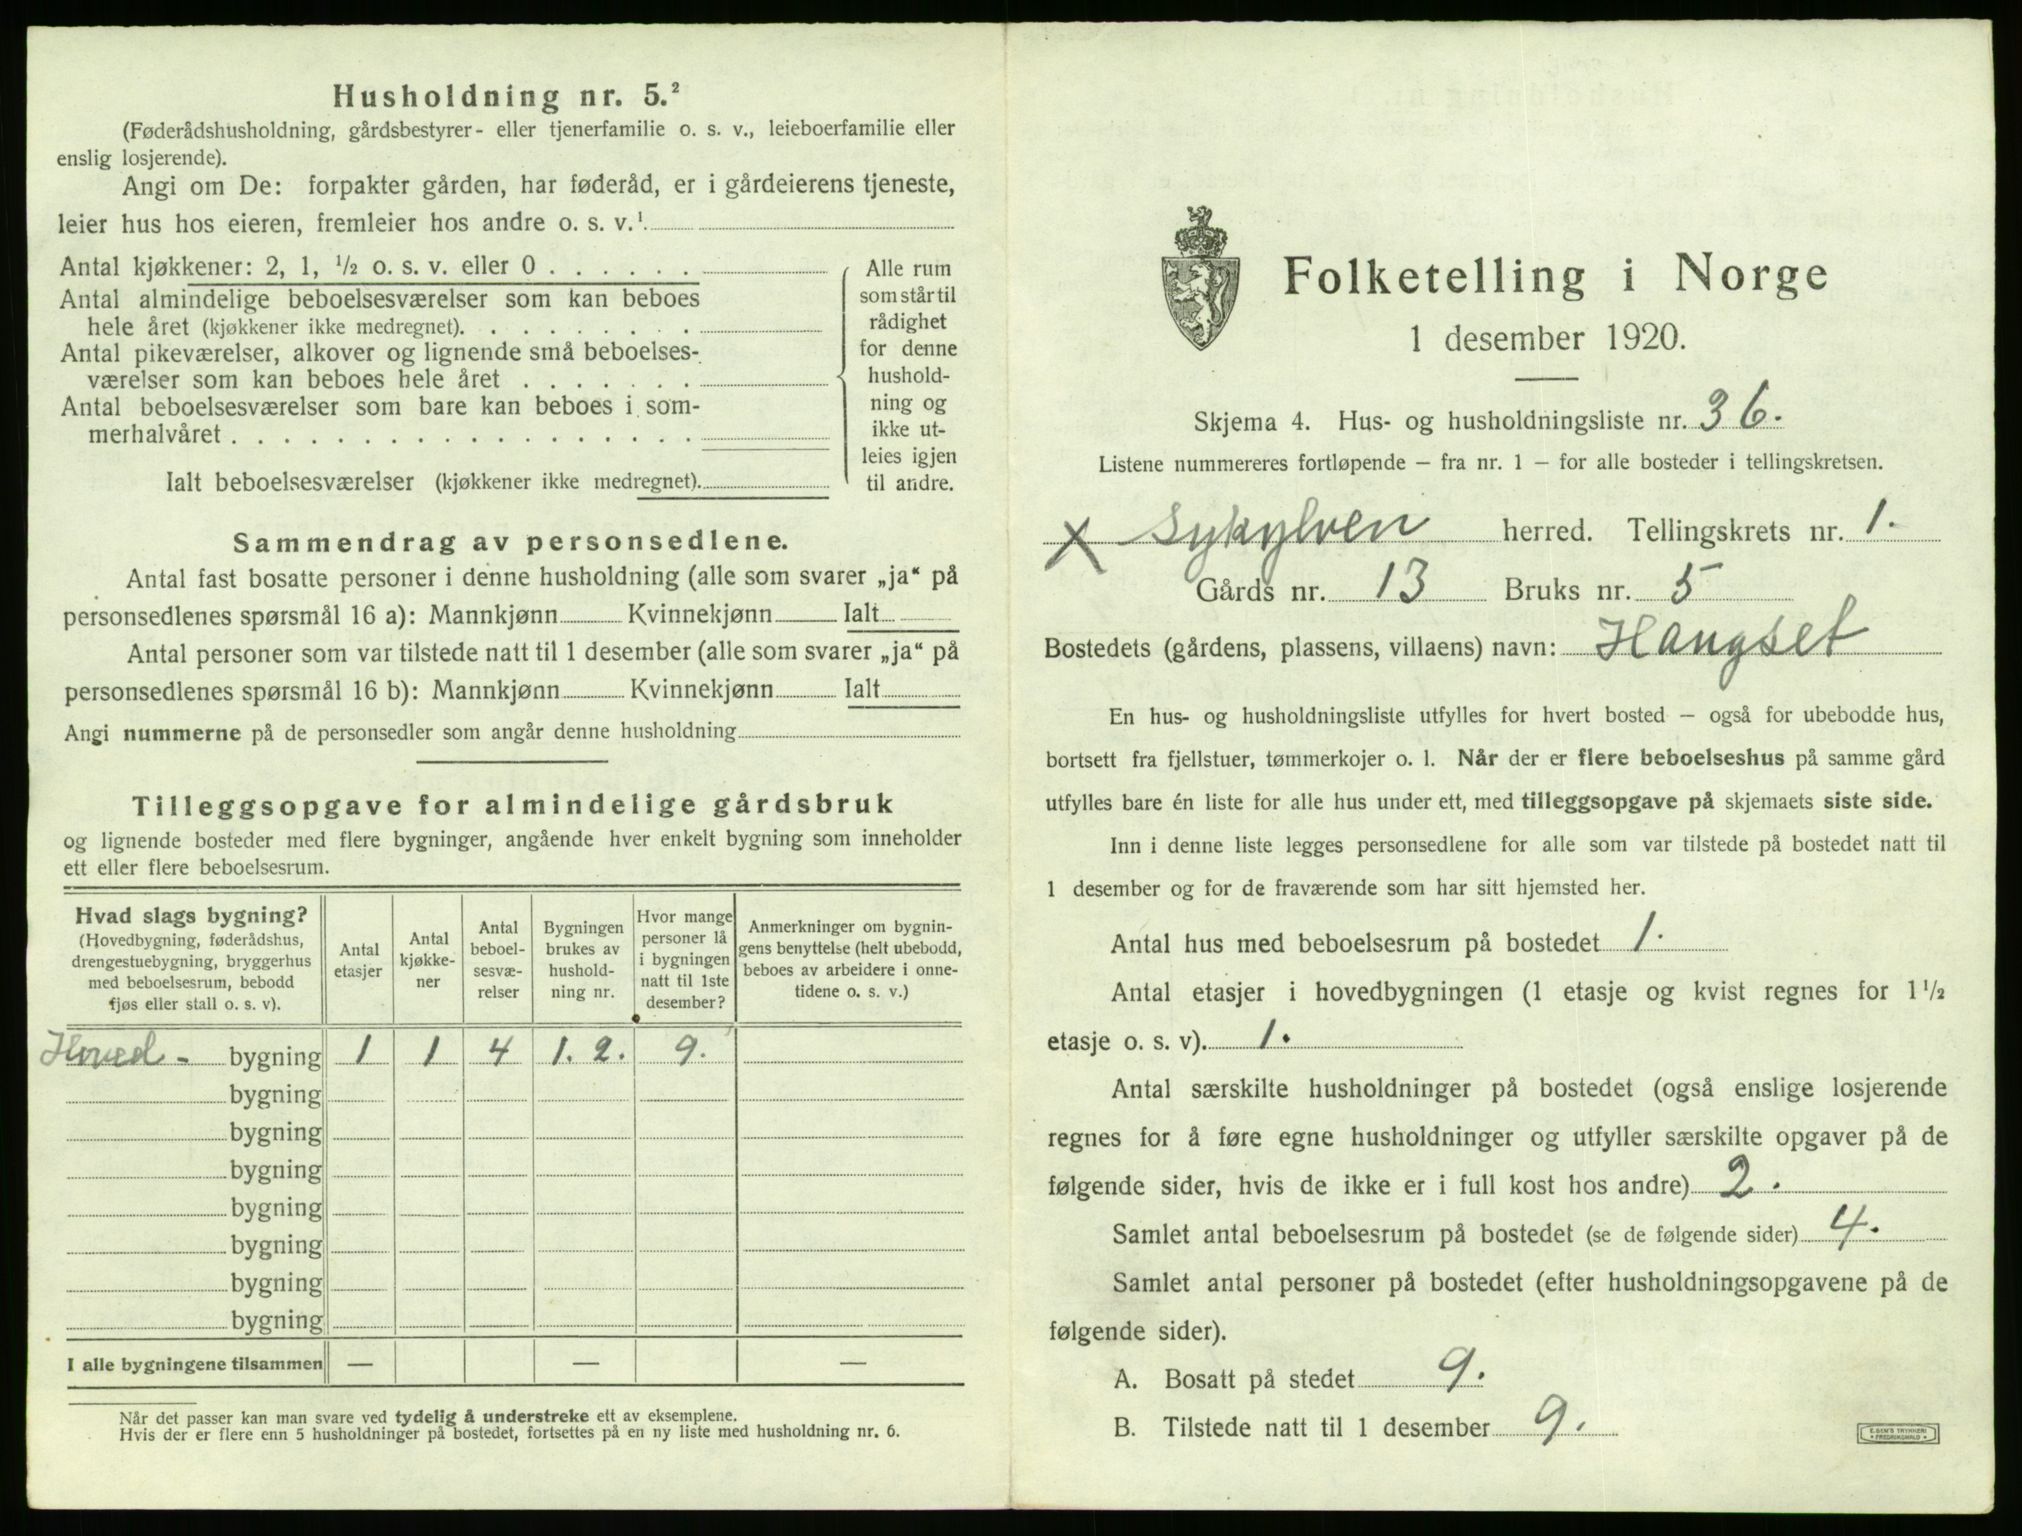 Husholdning nr. 5.²
(Føderådshusholdning, gårdsbestyrer- eller tjenerfamilie o. s. v., leieboerfamilie eller
enslig losjerende).
Angi om De: forpakter gården, har føderåd, er i gårdeierens tjeneste,
leier hus hos eieren, fremleier hos andre o. s. v.¹
Antal kjøkkener: 2, 1, ½ o. s. v. eller 0 . . . . . .
Antal almindelige beboelsesværelser som kan beboes
hele året (kjøkkener ikke medregnet). . . . . . . . .
Antal pikeværelser, alkover og lignende små beboelses-
værelser som kan beboes hele året . . . . . . .
Antal beboelsesværelser som bare kan beboes i som-
merhalvåret . . . . . . . . . . . . . . . . . .
Ialt beboelsesværelser (kjøkkener ikke medregnet).
Alle rum
som står til
rådighet
for denne
hushold-
ning og
ikke ut-
leies igjen
til andre.
Sammendrag av personsedlene.
Antal fast bosatte personer i denne husholdning (alle som svarer „ja“ på
personsedlenes spørsmål 16 a): Mannkjønn Kvinnekjønn Ialt
Antal personer som var tilstede natt til 1 desember (alle som svarer „ja“ på
personsedlenes spørsmål 16 b): Mannkjønn Kvinnekjønn Ialt
Angi nummerne på de personsedler som angår denne husholdning
Tilleggsopgave for almindelige gårdsbruk
og lignende bosteder med flere bygninger, angående hver enkelt bygning som inneholder
ett eller flere beboelsesrum.
Hvad slags bygning?
(Hovedbygning, føderådshus,
drengestuebygning, bryggerhus
med beboelsesrum, bebodd
fjøs eller stall o. s. v).
Antal
etasjer
Antal
kjøkke-
ner
Antal
beboel-
sesvæ-
relser
Bygningen
brukes av
hushold-
ning nr.
Hvor mange
personer lå
i bygningen
natt til 1ste
desember?
Anmerkninger om bygnin-
gens benyttelse (helt ubebodd,
beboes av arbeidere i onne-
tidene o. s. v.)
Hoved- bygning 1 1 4 1. 2. 9.
bygning
bygning
bygning
bygning
bygning
bygning
bygning
I alle bygningene tilsammen — — —
Når det passer kan man svare ved tydelig å understreke ett av eksemplene.
Hvis der er flere enn 5 husholdninger på bostedet, fortsettes på en ny liste med husholdning nr. 6.
Folketelling i Norge
1 desember 1920.
Skjema 4. Hus- og husholdningsliste nr. 36.
Listene nummereres fortløpende – fra nr. 1 – for alle bosteder i tellingskretsen.
X Sykylven herred. Tellingskrets nr. 1.
Gårds nr. 13 Bruks nr. 5
Bostedets (gårdens, plassens, villaens) navn: Haugset
En hus- og husholdningsliste utfylles for hvert bosted – også for ubebodde hus,
bortsett fra fjellstuer, tømmerkojer o. l. Når der er flere beboelseshus på samme gård
utfylles bare én liste for alle hus under ett, med tilleggsopgave på skjemaets siste side.
Inn i denne liste legges personsedlene for alle som var tilstede på bostedet natt til
1 desember og for de fraværende som har sitt hjemsted her.
Antal hus med beboelsesrum på bostedet 1.
Antal etasjer i hovedbygningen (1 etasje og kvist regnes for 1½
etasje o. s. v). 1.
Antal særskilte husholdninger på bostedet (også enslige losjerende
regnes for å føre egne husholdninger og utfyller særskilte opgaver på de
følgende sider, hvis de ikke er i full kost hos andre) 2.
Samlet antal beboelsesrum på bostedet (se de følgende sider) 4.
Samlet antal personer på bostedet (efter husholdningsopgavene på de
følgende sider).
A. Bosatt på stedet 9.
B. Tilstede natt til 1 desember 9.
E. SEM'S TRYKKERI
FREDRIKSHALD